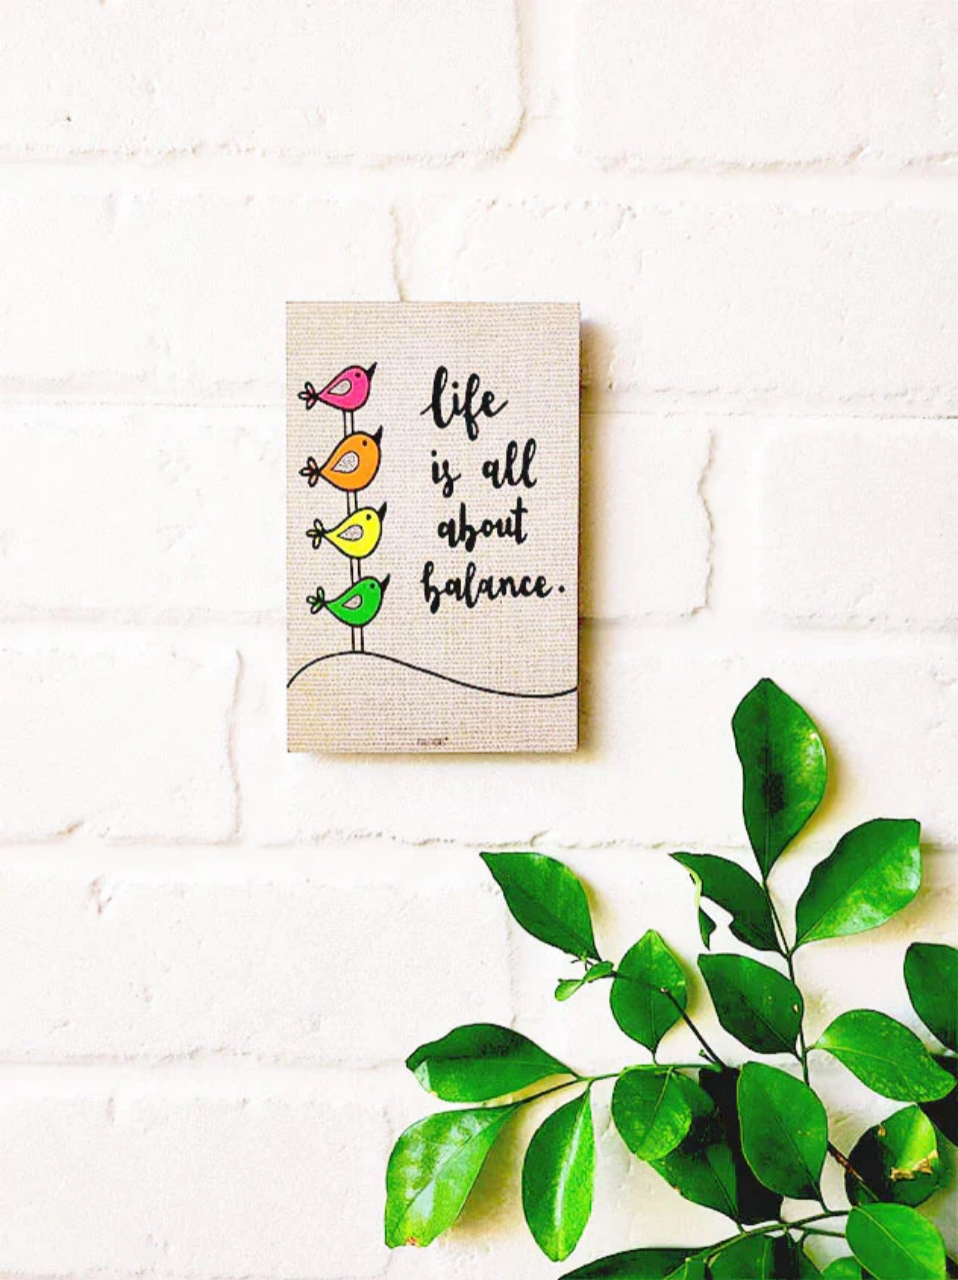 life
is all
about
balance.